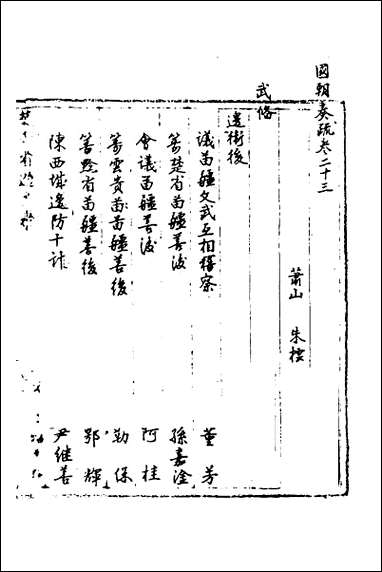 國朝奏疏卷二十三
蕭山　朱橒
武備
邊衛後
議苗疆文武互相稽察　董芳
籌楚省苗疆善後　孫嘉淦
會議苗疆善後　阿桂
籌雲貴苗苗疆善後　勒保
籌黔省苗疆善後　鄂輝
陳西垂邊防十計　尹繼善